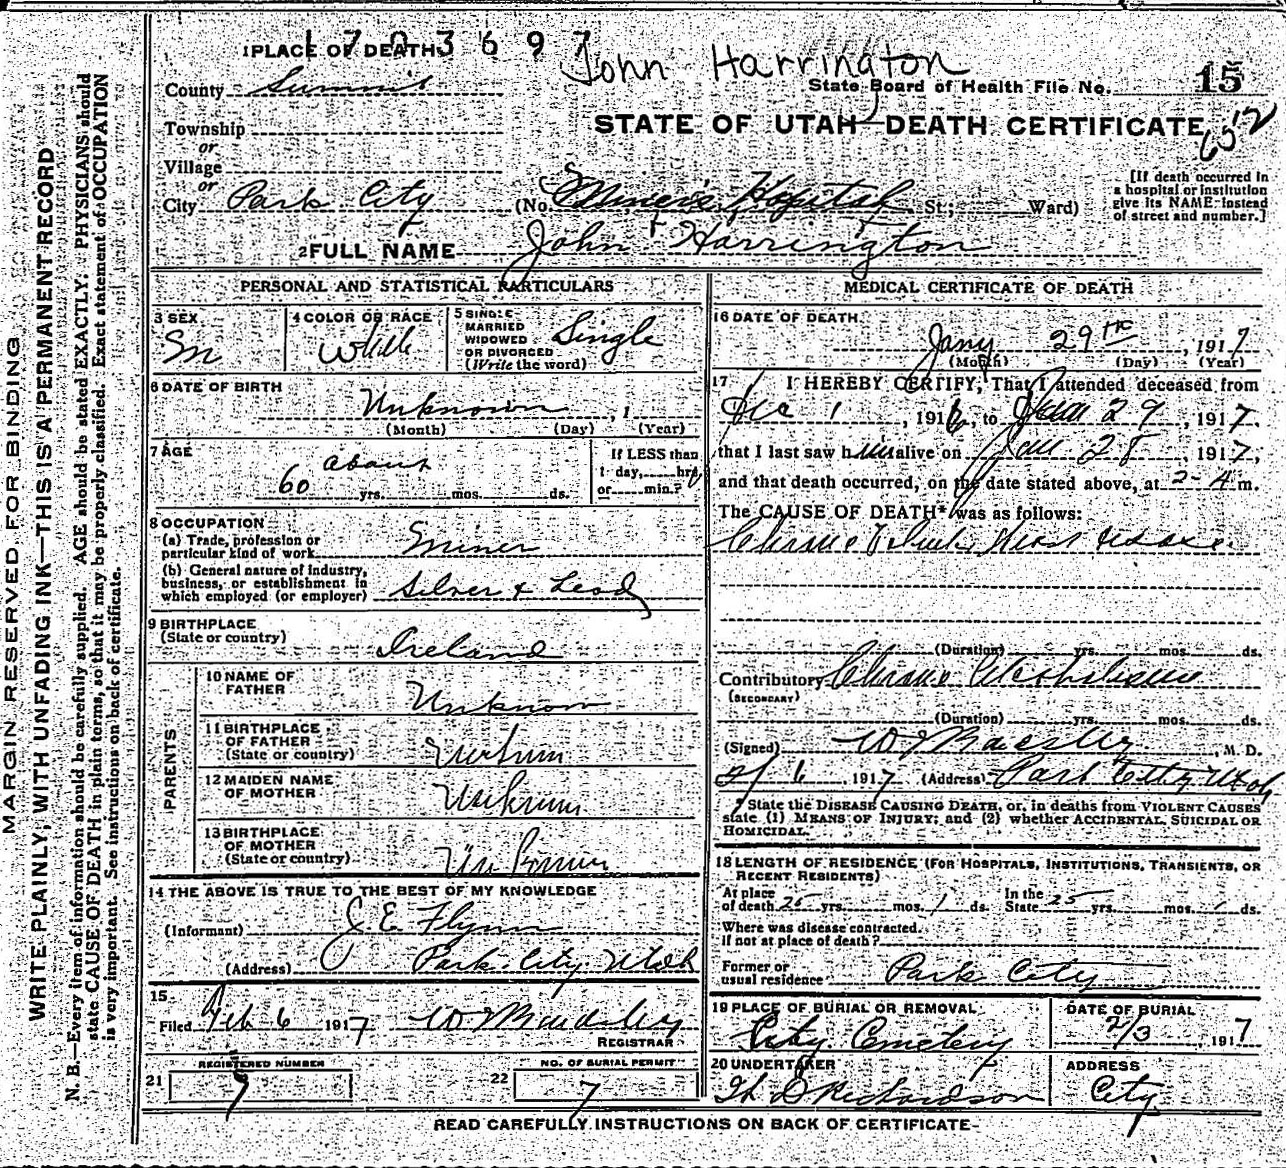 1703697
John Harrington
1 PLACE OF DEATH
County Summit
State Board of Health File No. 15
Township
STATE OF UTAH—DEATH CERTIFICATE
or
Village
or
City Park City (No. Miner's Hospital St.; Ward)
[If death occurred in
a hospital or institution
give its NAME instead
of street and number.]
2 FULL NAME John Harrington
PERSONAL AND STATISTICAL PARTICULARS
3 SEX M
4 COLOR OR RACE White
5 SINGLE
MARRIED
WIDOWED
OR DIVORCED
(Write the word)
Single
6 DATE OF BIRTH
Unknown , 1
(Month) (Day) (Year)
7 AGE
about
60 yrs. mos. ds.
If LESS than
1 day, hrs
or min.?
8 OCCUPATION
(a) Trade, profession or
particular kind of work Miner
(b) General nature of industry,
business, or establishment in
which employed (or employer) Silver & Lead
9 BIRTHPLACE
(State or country)
Ireland
PARENTS
10 NAME OF
FATHER
Unknown
11 BIRTHPLACE
OF FATHER
(State or country)
Unknown
12 MAIDEN NAME
OF MOTHER
Unknown
13 BIRTHPLACE
OF MOTHER
(State or country)
Unknown
14 THE ABOVE IS TRUE TO THE BEST OF MY KNOWLEDGE
(Informant) J. E. Flynn
(Address) Park City Utah
15
Filed Feb 6 1917
REGISTRAR
REGISTERED NUMBER
21 9
NO. OF BURIAL PERMIT
22 7
MEDICAL CERTIFICATE OF DEATH
16 DATE OF DEATH
Jany 29 , 1917
(Month) (Day) (Year)
17 I HEREBY CERTIFY, That I attended deceased from
Dec 1 , 1916, to Jan 29 , 1917,
that I last saw him alive on Jan 28 , 1917,
and that death occurred, on the date stated above, at 2- A m.
The CAUSE OF DEATH* was as follows:
Chronic Heart
(Duration) yrs. mos. ds.
Contributory Chronic Alcoholism
(SECONDARY)
(Duration) yrs. mos. ds.
(Signed) , M. D.
2/6 1917 (Address) Park City Utah
* State the DISEASE CAUSING DEATH, or, in deaths from VIOLENT CAUSES
state (1) MEANS OF INJURY; and (2) whether ACCIDENTAL, SUICIDAL OR
HOMICIDAL.
18 LENGTH OF RESIDENCE (FOR HOSPITALS, INSTITUTIONS, TRANSIENTS, OR
RECENT RESIDENTS)
At place
of death 25 yrs. mos. ds.
In the
State 25 yrs. mos. ds.
Where was disease contracted.
if not at place of death?
Former or
usual residence Park City
19 PLACE OF BURIAL OR REMOVAL
City Cemetery
DATE OF BURIAL
2/3 , 1917
20 UNDERTAKER
Richardson
ADDRESS
City
READ CAREFULLY INSTRUCTIONS ON BACK OF CERTIFICATE
MARGIN RESERVED FOR BINDING
WRITE PLAINLY, WITH UNFADING INK—THIS IS A PERMANENT RECORD
N. B.—Every item of information should be carefully supplied. AGE should be stated EXACTLY. PHYSICIANS should
state CAUSE OF DEATH in plain terms, so that it may be properly classified. Exact statement of OCCUPATION
is very important. See instructions on back of certificate.